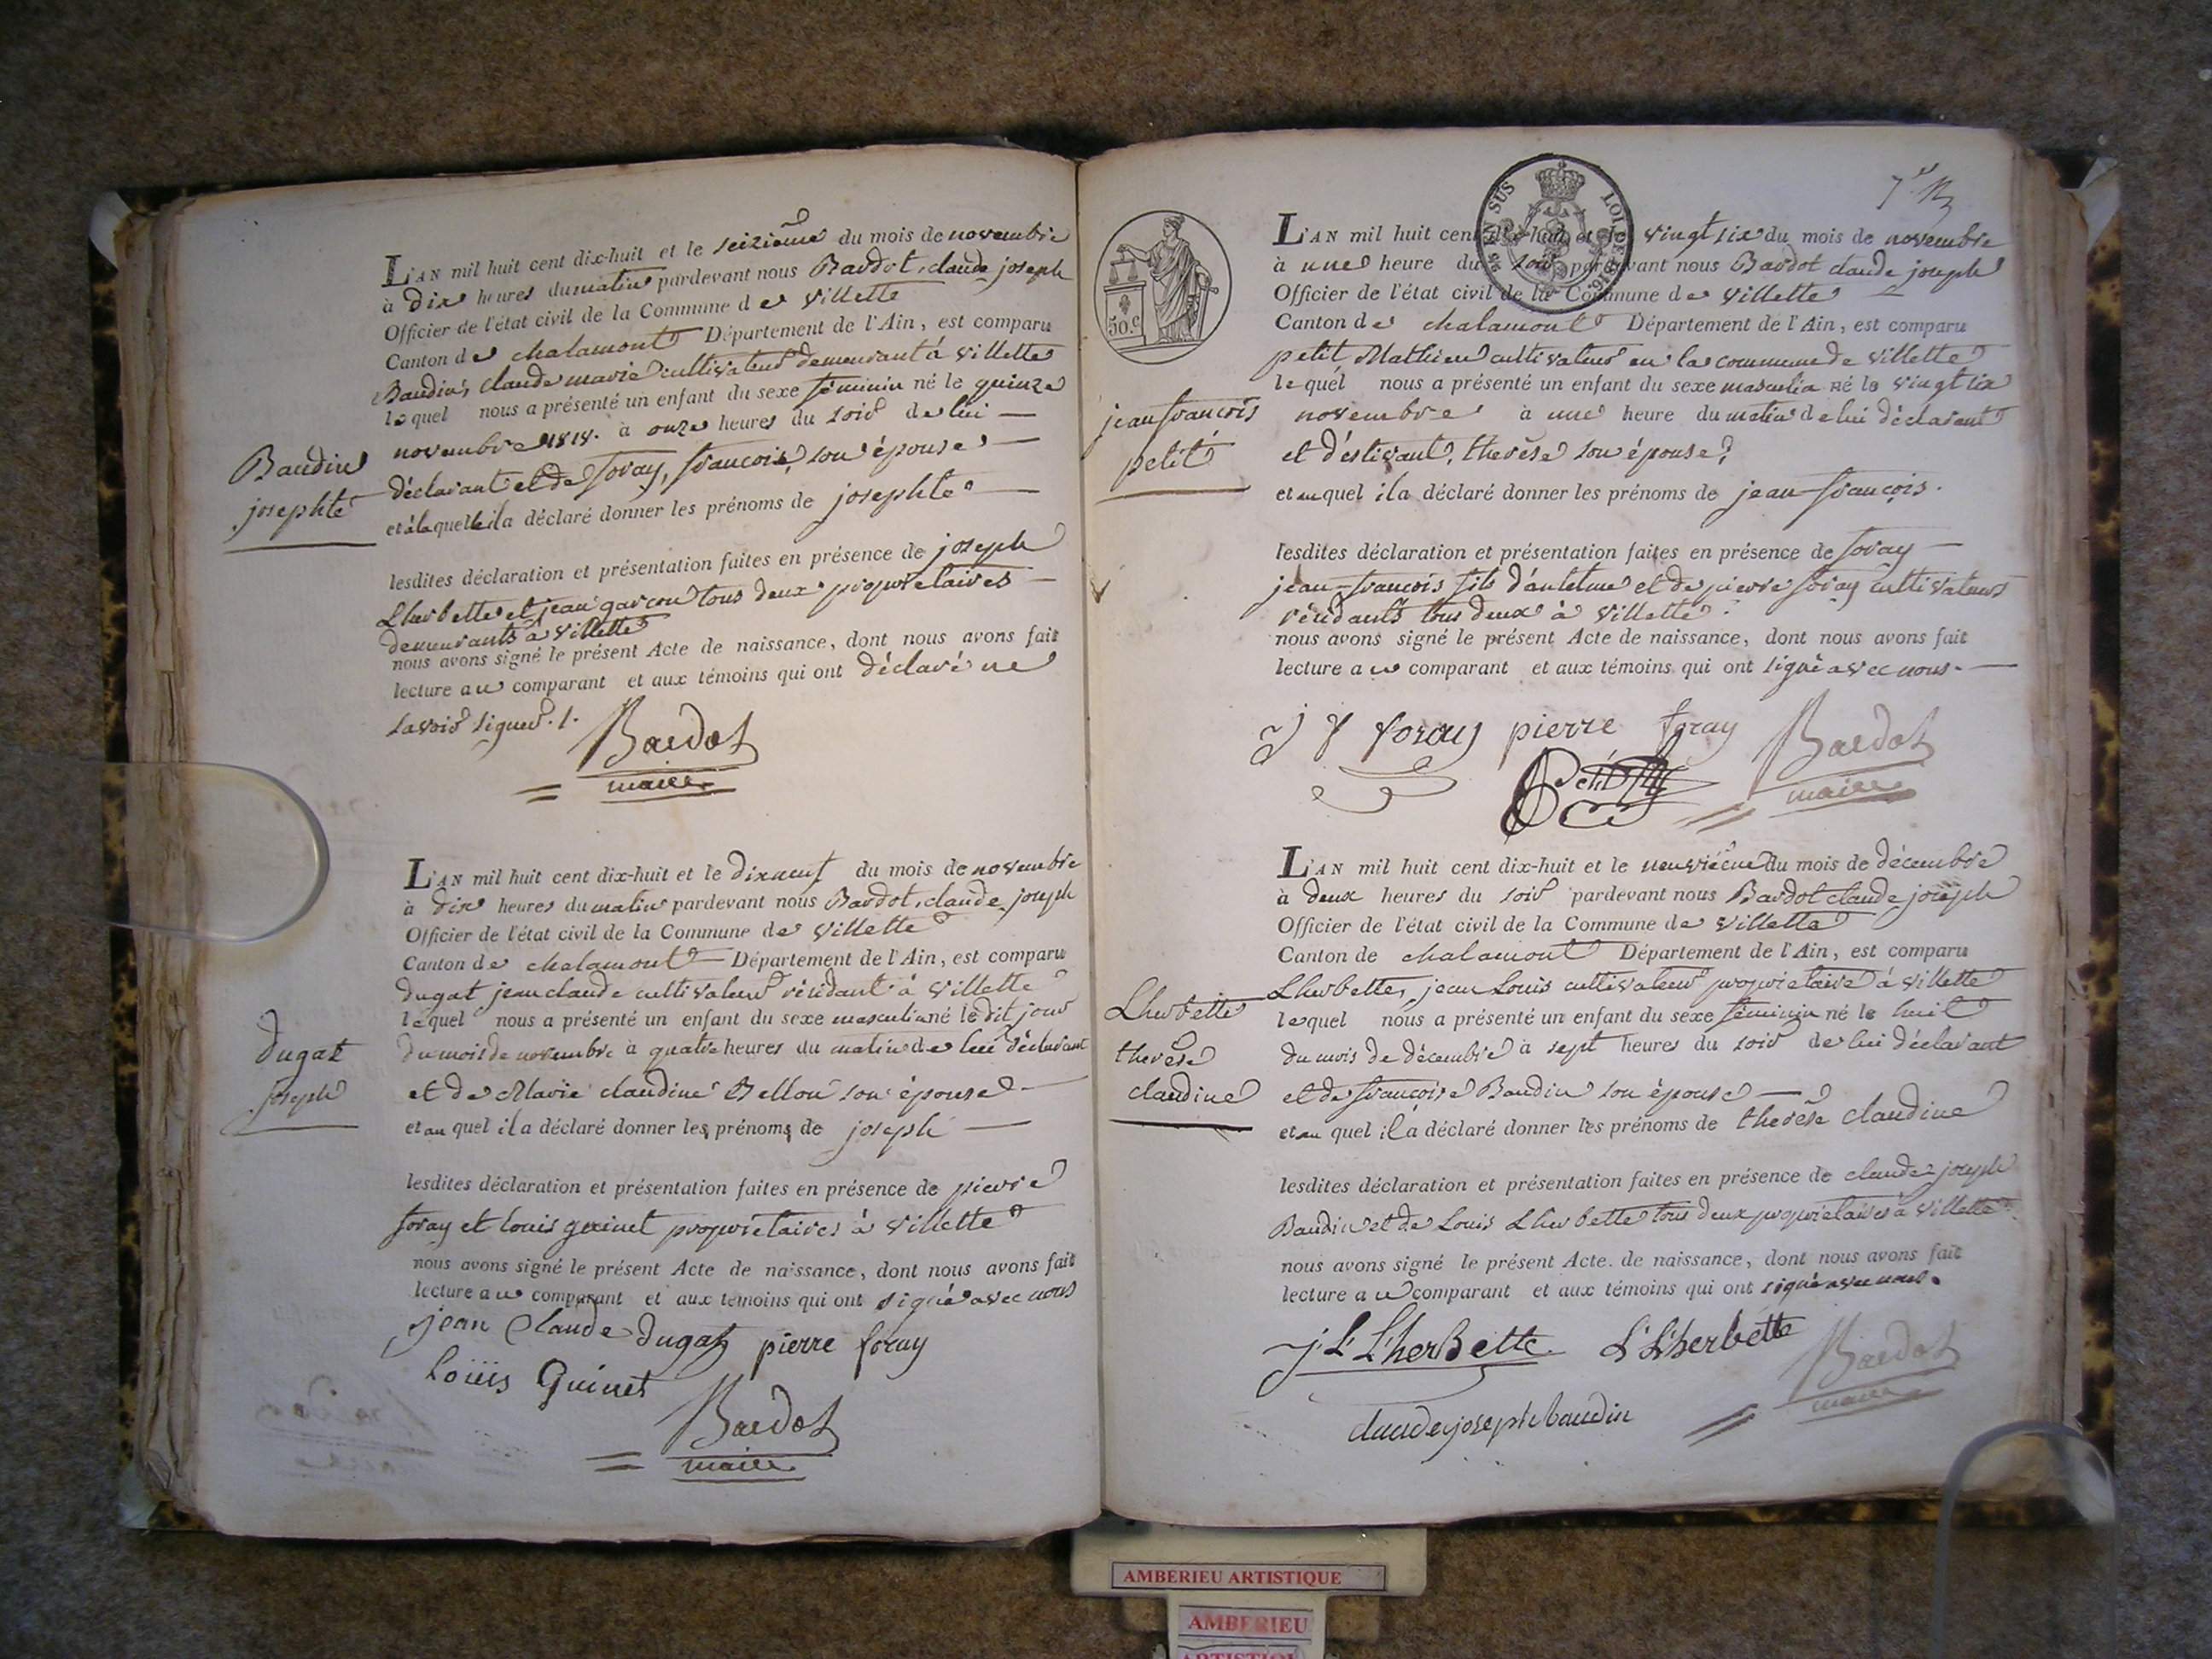 L'AN mil huit cent dix-huit et le seizième du mois de novembre
à dix heures du matin pardevant nous Bardot, claude joseph
Officier de l'état civil de la Commune de villette
Canton de chalamont Département de l'Ain, est comparu
Baudin, claude marie cultivateur demeurant à villette
lequel nous a présenté un enfant du sexe féminin né le quinze
novembre 1818. à onze heures du soir de lui
déclarant et de foray, francoise, son épouse
et à laquelle il a déclaré donner les prénoms de josephte
Baudin
josephte
lesdites déclaration et présentation faites en présence de joseph
Lherbette et jean garcon tous deux propriétaires
demeurants à villette
nous avons signé le présent Acte de naissance, dont nous avons fait
lecture au comparant et aux témoins qui ont déclaré ne
savoir signer
Bardot
maire
L'AN mil huit cent dix-huit et le dixneuf du mois de novembre
à dix heures du matin pardevant nous Bardot, claude joseph
Officier de l'état civil de la Commune de villette
Canton de chalamont Département de l'Ain, est comparu
dugat jean claude cultivateur résidant à villette
lequel nous a présenté un enfant du sexe masculin né le dit jour
du mois de novembre à quatre heures du matin de lui déclarant
et de Marie claudine Bellon son épouse
et au quel il a déclaré donner les prénoms de joseph
dugat
joseph
lesdites déclaration et présentation faites en présence de pierre
foray et louis guinet propriétaires à villette
nous avons signé le présent Acte de naissance, dont nous avons fait
lecture au comparant et aux témoins qui ont signé avec nous
jean Claude dugat pierre foray
Loüis Guinet
Bardot
maire
50.c
L'AN mil huit cent dix-huit et le vingt six du mois de novembre
à une heure du soir pardevant nous Bardot claude joseph
Officier de l'état civil de la Commune de villette
Canton de chalamont Département de l'Ain, est comparu
petit Mathieu cultivateur en la commune de villette
lequel nous a présenté un enfant du sexe masculin né le vingt six
novembre à une heure du matin de lui déclarant
et d'éstivant, therèse son épouse,
et au quel il a déclaré donner les prénoms de jean françois.
jean françois
petit
lesdites déclaration et présentation faites en présence de foray
jean-francois fils d'antelme et de pierre foray cultivateurs
résidants tous deux à villette
nous avons signé le présent Acte de naissance, dont nous avons fait
lecture au comparant et aux témoins qui ont signé avec nous.
j f foray pierre foray
Petit
Bardot
maire
L'AN mil huit cent dix-huit et le neuvième du mois de décembre
à deux heures du soir pardevant nous Bardot claude joseph
Officier de l'état civil de la Commune de villette
Canton de chalamont Département de l'Ain, est comparu
Lherbette, jean Louis cultivateur propriétaire à villette
lequel nous a présenté un enfant du sexe féminin né le huit
du mois de décembre à sept heures du soir de lui déclarant
et de françoise Baudin son épouse
et au quel il a déclaré donner les prénoms de therèse claudine
Lherbette
therèse
claudine
lesdites déclaration et présentation faites en présence de claude joseph
Baudin et de Louis Lherbette tous deux propriétaires à villette
nous avons signé le présent Acte de naissance, dont nous avons fait
lecture au comparant et aux témoins qui ont signé avec nous.
j. L. L'herBette. L L'herbette
Bardot
maire
claude joseph baudin
AMBERIEU ARTISTIQUE
AMBERIEU
ARTISTIQU